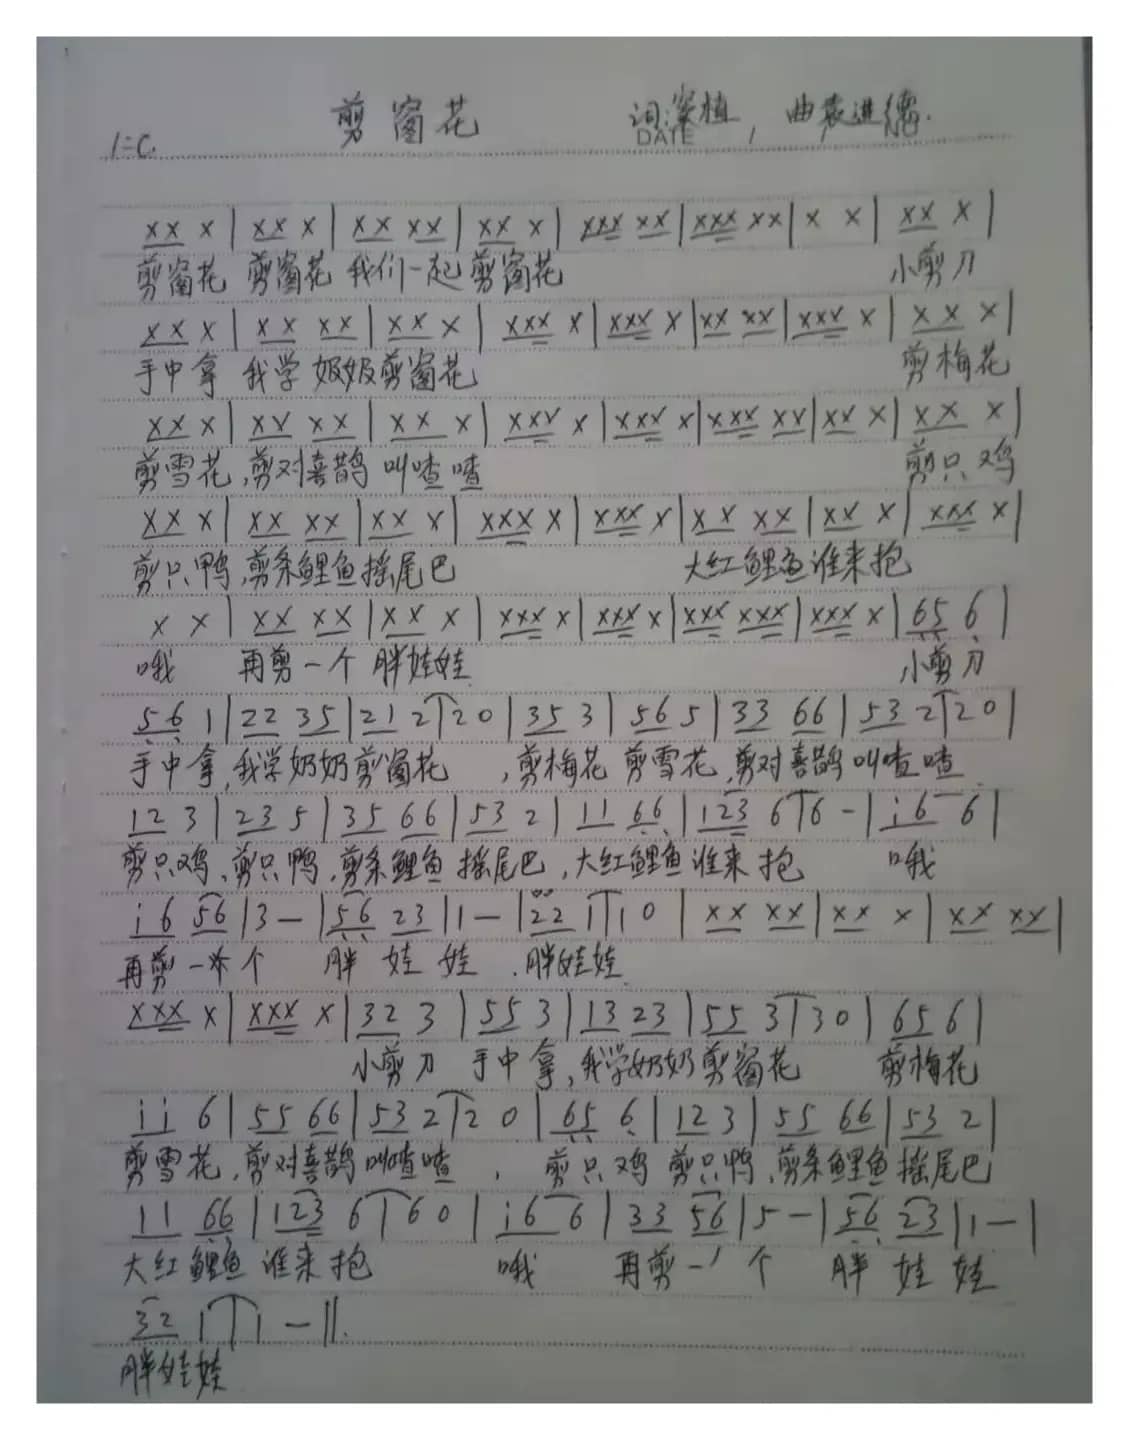 剪窗花 词:梁植, 曲袁进德.
DATE
1=C.
xx x | xx x | xx xx | xx x | xxx xx | xxx xx | x x | xx x |
剪窗花 剪窗花 我们一起剪窗花 小剪刀
xx x | xx xx | xx x | xxx x | xxx x | xx xx | xxx x | xx x |
手中拿 我学奶奶剪窗花 剪梅花
xx x | xx xx | xx x | xxx x | xxx x | xxx xx | xx x | xx x |
剪雪花,剪对喜鹊 叫喳喳 剪只鸡
xx x | xx xx | xx x | xxx x | xxx x | xx xx | xx x | xxx x |
剪只鸭,剪条鲤鱼摇尾巴 大红鲤鱼谁来抱
x x | xx xx | xx x | xxx x | xxx x | xxx xxx | xxx x | 65 6 |
哦 再剪一个 胖娃娃 小剪刀
56 1 | 22 35 | 21 2 | 20 | 35 3 | 56 5 | 33 66 | 53 2 | 20 |
手中拿,我学奶奶剪窗花 ,剪梅花 剪雪花,剪对喜鹊 叫喳喳
12 3 | 23 5 | 35 66 | 53 2 | 11 66 | 123 6 | 6 - | i6 6 |
剪只鸡,剪只鸭,剪条鲤鱼 摇尾巴,大红鲤鱼谁来抱 哦
i6 56 | 3 - | 56 23 | 1 - | 22 1 | 10 | xx xx | xx x | xx xx |
再剪一个 胖 娃 娃 .胖娃娃
xxx x | xxx x | 32 3 | 55 3 | 13 23 | 55 3 | 30 | 65 6 |
小剪刀 手中拿,我学奶奶剪窗花 剪梅花
ii 6 | 55 66 | 53 2 | 20 | 65 6 | 12 3 | 55 66 | 53 2 |
剪雪花,剪对喜鹊叫喳喳 , 剪只鸡 剪只鸭,剪条鲤鱼摇尾巴
11 66 | 123 6 | 60 | i6 6 | 33 56 | 5 - | 56 23 | 1 - |
大红鲤鱼 谁来抱 哦 再剪一个 胖 娃 娃
32 1 | 1 - ||.
胖娃娃